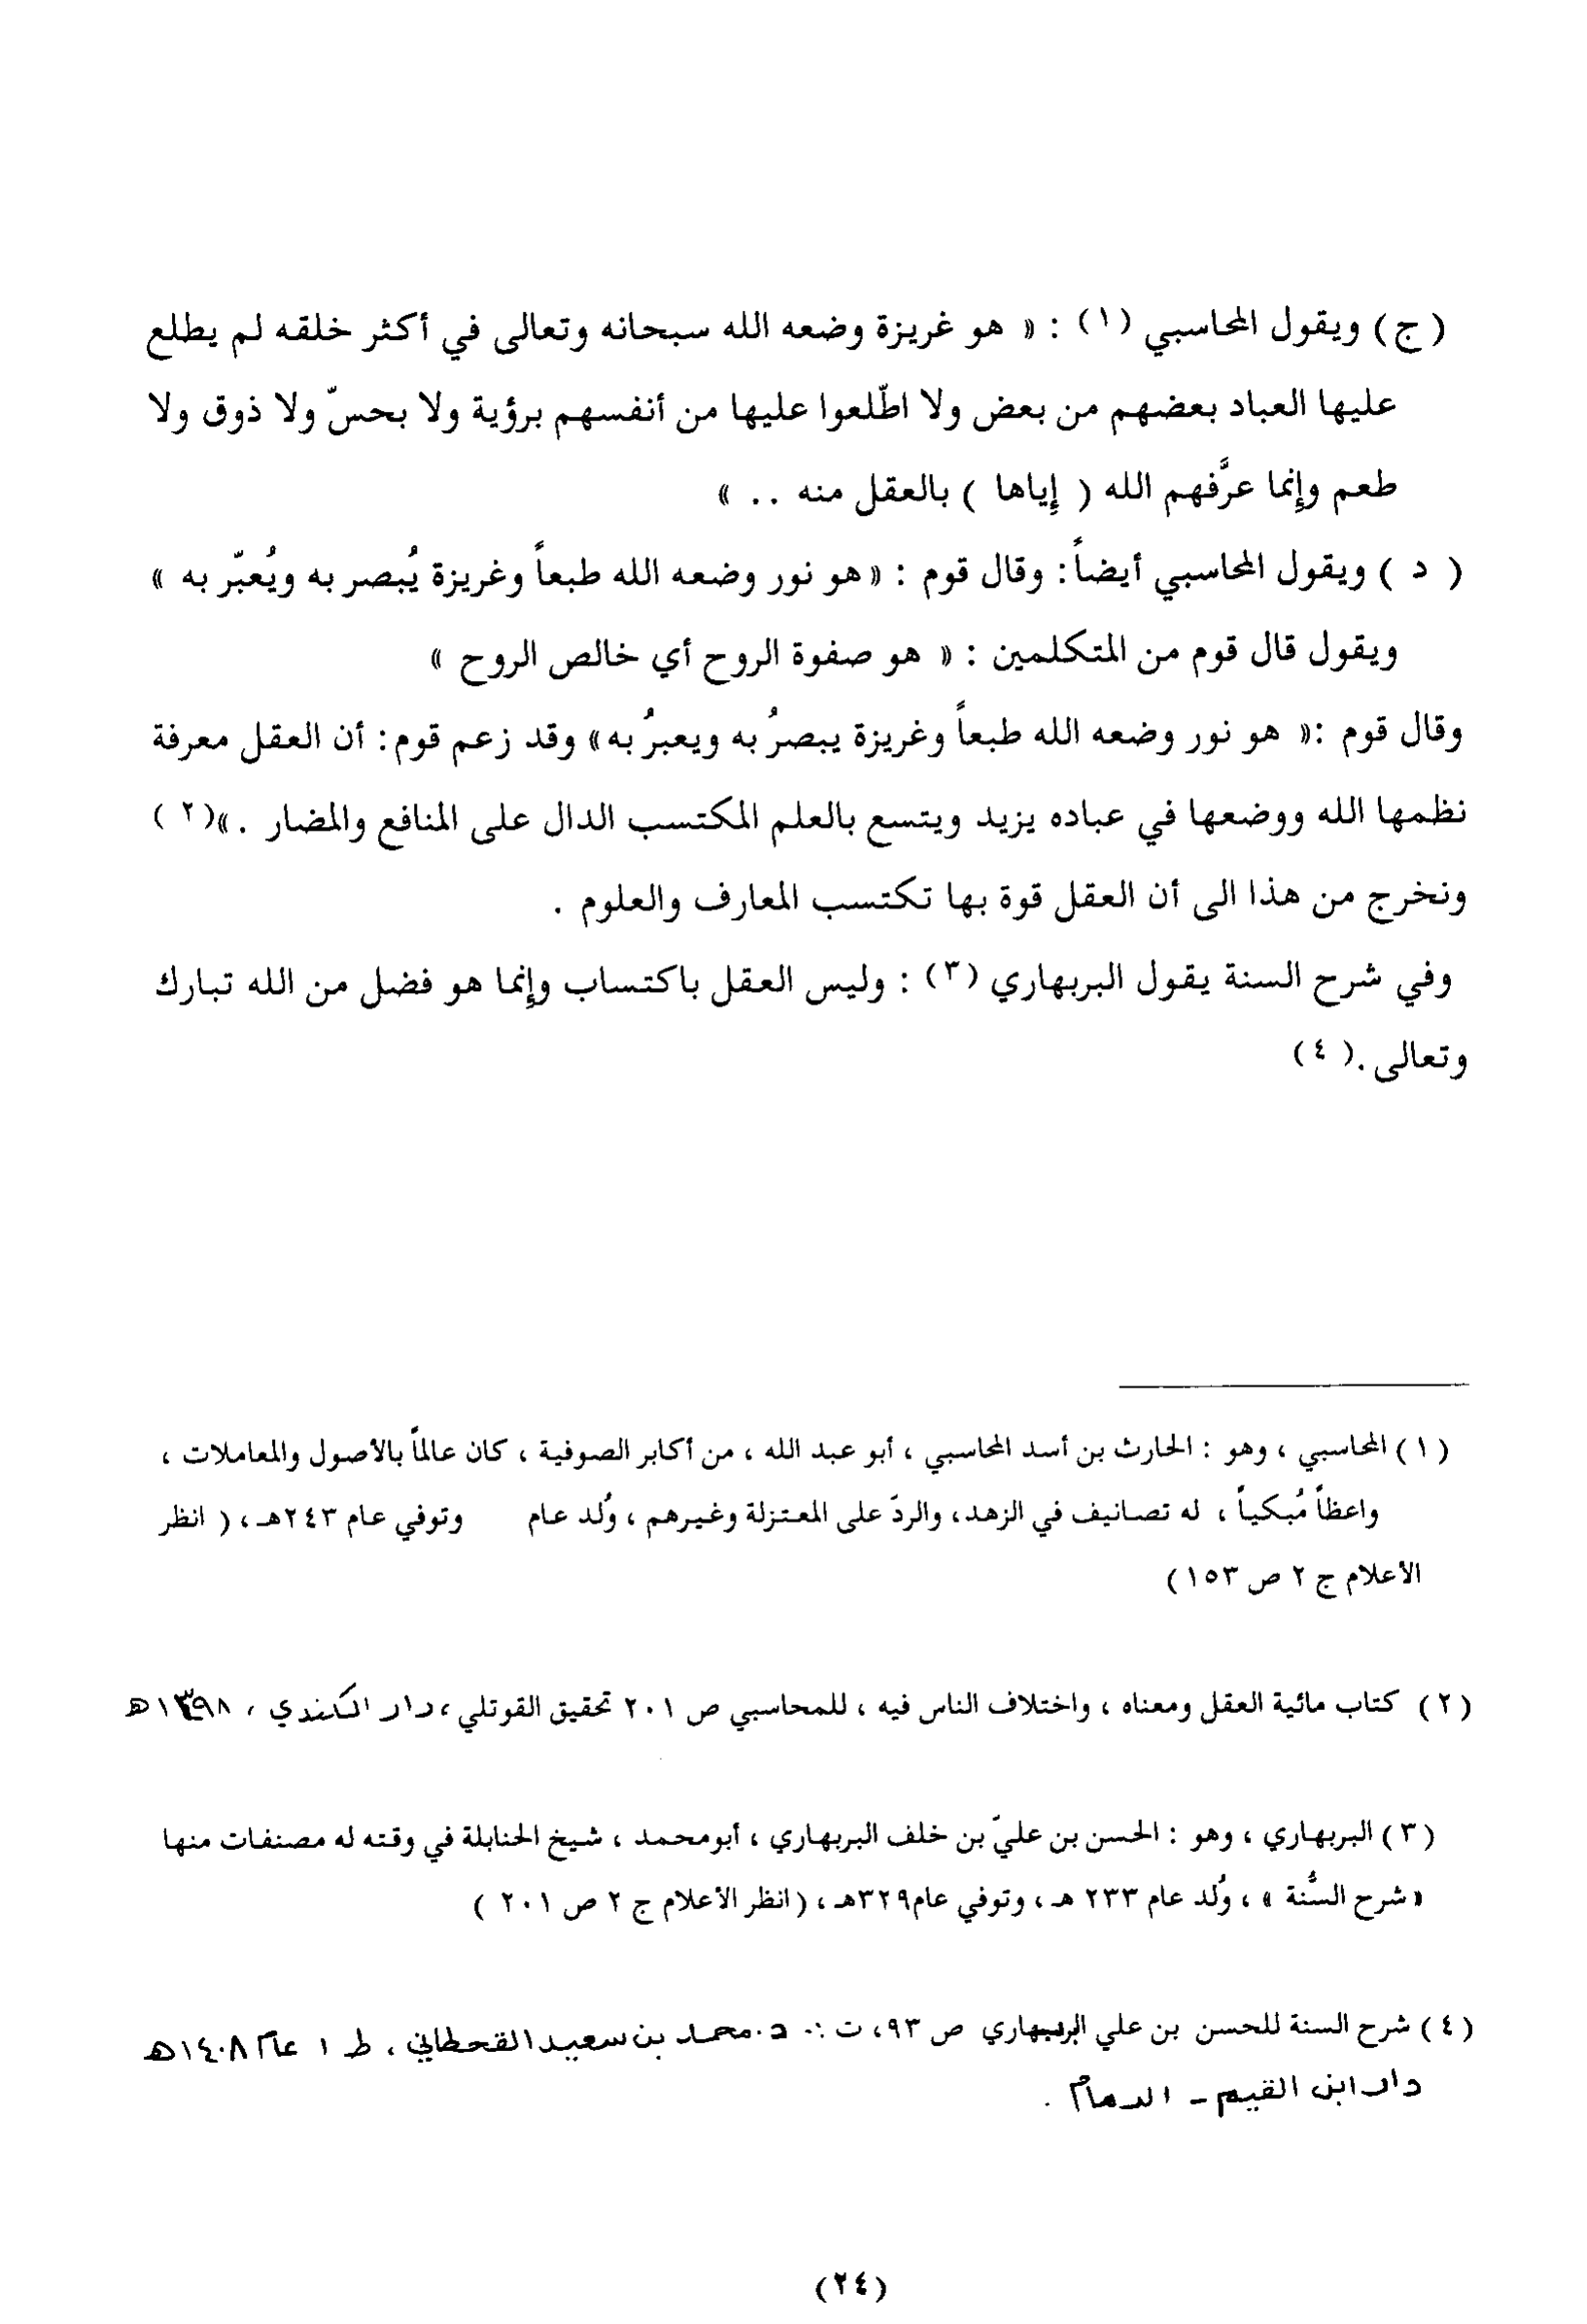 ( ج ) ويقول المحاسبي (١) : « هو غريزة وضعه الله سبحانه وتعالى في أكثر خلقه لم يطلع
عليها العباد بعضهم من بعض ولا اطّلعوا عليها من أنفسهم برؤية ولا بحسّ ولا ذوق ولا
طعم وإنما عرَّفهم الله ( إياها ) بالعقل منه .. »
( د ) ويقول المحاسبي أيضاً : وقال قوم : « هو نور وضعه الله طبعاً وغريزة يُبصر به ويُعبّر به »
ويقول قال قوم من المتكلمين : « هو صفوة الروح أي خالص الروح »
وقال قوم :« هو نور وضعه الله طبعاً وغريزة يبصرُ به ويعبرُ به» وقد زعم قوم: أن العقل معرفة
نظمها الله ووضعها في عباده يزيد ويتسع بالعلم المكتسب الدال على المنافع والمضار .»(٢ )
ونخرج من هذا الى أن العقل قوة بها تكتسب المعارف والعلوم .
وفي شرح السنة يقول البربهاري (٣) : وليس العقل باكتساب وإنما هو فضل من الله تبارك
وتعالى .( ٤)
( ١ ) المحاسبي ، وهو : الحارث بن أسد المحاسبي ، أبو عبد الله ، من أكابر الصوفية ، كان عالماً بالأصول والمعاملات ،
واعظاً مُبكياً ، له تصانيف في الزهد، والردّ على المعتزلة وغيرهم ، وُلد عام وتوفي عام ٢٤٣هـ ، ( انظر
الأعلام ج ٢ ص ١٥٣)
( ٢ ) كتاب مائية العقل ومعناه ، واختلاف الناس فيه ، للمحاسبي ص ٢٠١ تحقيق القوتلي ، دار الكندي ، ١٣٩٨هـ
( ٣ ) البربهاري ، وهو : الحسن بن عليّ بن خلف البربهاري ، أبومحمد ، شيخ الحنابلة في وقته له مصنفات منها
« شرح السُّنة » ، وُلد عام ٢٣٣ هـ ، وتوفي عام٣٢٩هـ ، ( انظر الأعلام ج ٢ ص ٢٠١ )
( ٤ ) شرح السنة للحسن بن علي البربهاري ص ٩٣، ت : د. محمد بن سعيد القحطاني ، ط ١ عام ١٤٠٨هـ
دار ابن القيم - الدمام .
(٢٤)